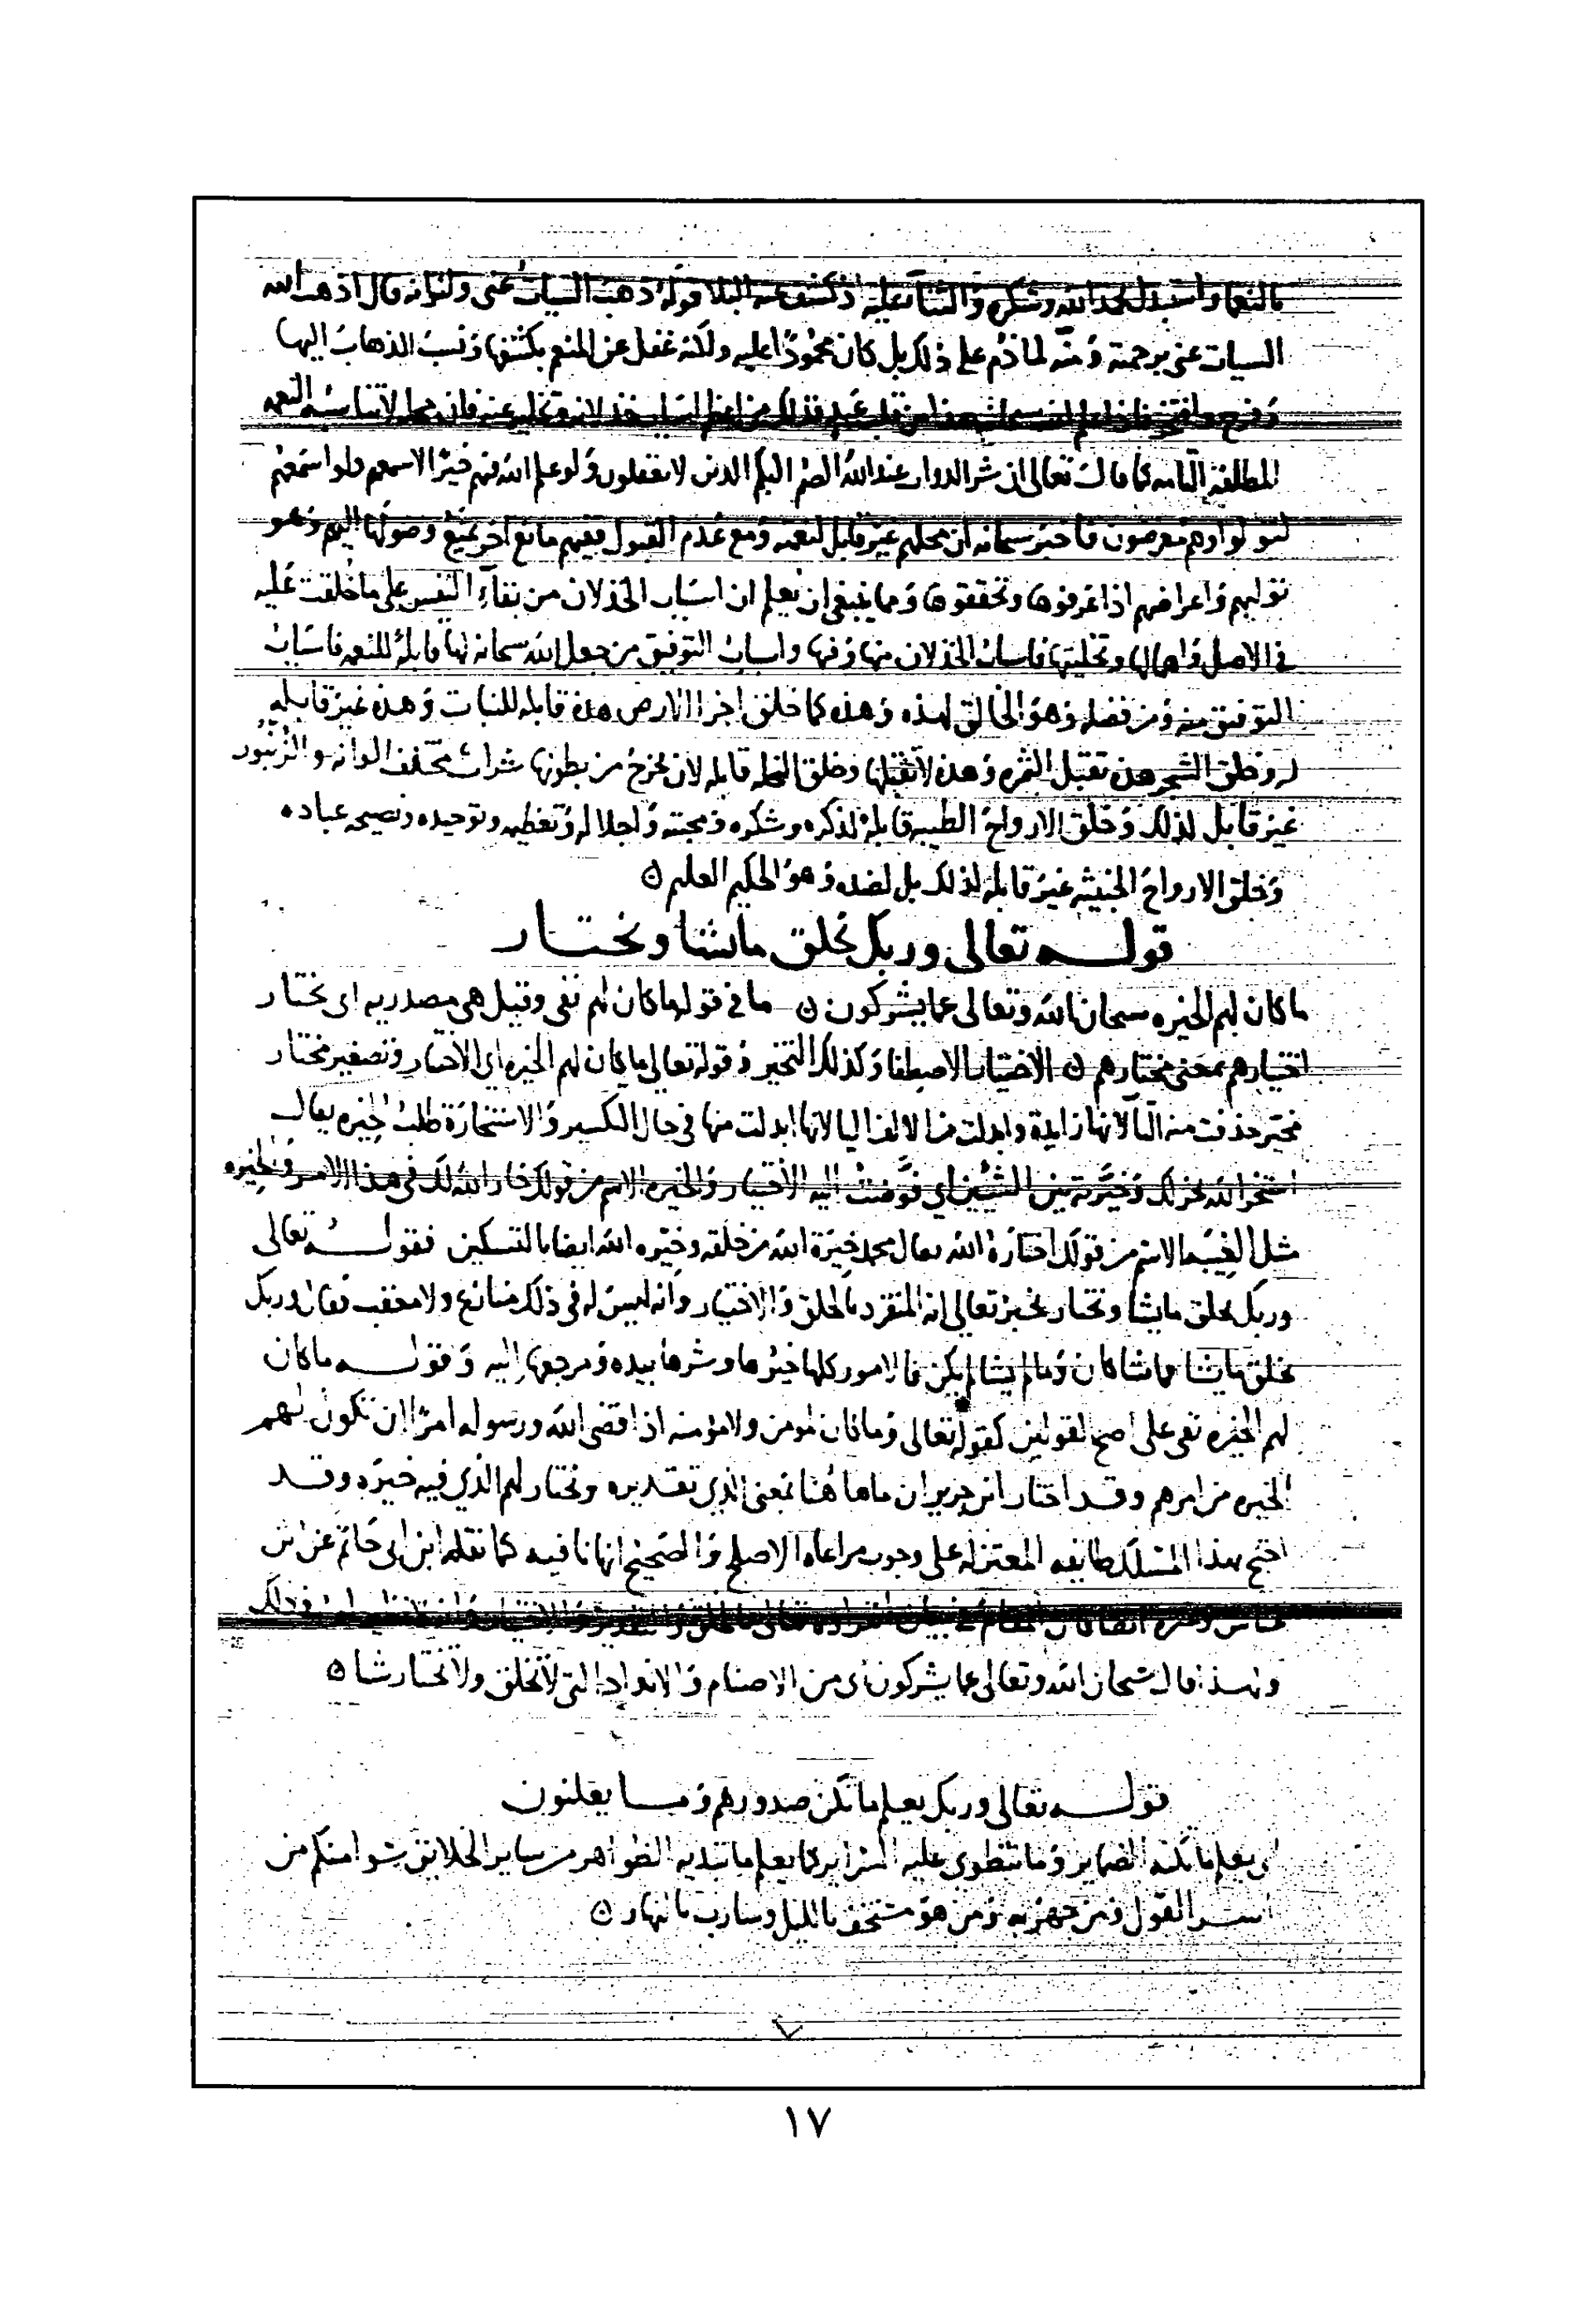 بالنعما واستبدل بحمد الله وشكره والثناء عليه اذ كشف عنه البلا قوله ذهب السيات عني ولو انه قال اذهب الله
السيات عني برحمته ومنه لما ذم على ذلك بل كان محمودا عليه ولكنه غفل عن المنعم بكشفها ونسب الذهاب اليها
وفرح وافتخر فاذا علم الله سبحانه هذا من قلب عبد فذلك من اعظم اسباب خذلانه وتخليه عنه فان محله لا تناسبه النعمه
المطلقه التامه كما قال تعالى ان شر الدواب عند الله الصم البكم الذين لا يعقلون ولو علم الله فيهم خيرا لاسمعهم ولو اسمعهم
لتولوا وهم معرضون فاخبر سبحانه ان محلهم غير قابل لنعمه ومع عدم القبول ففيهم مانع اخر يمنع وصولها اليهم وهو
توليهم واعراضهم اذا عرفوها وتحققوها ومما ينبغي ان يعلم ان اسباب الخذلان من بقاء النفس على ما خلقت عليه
في الاصل واهمالها وتخليتها فاسباب الخذلان منها وفيها واسباب التوفيق من جعل الله سبحانه لها قابلة للنعمه فاسباب
التوفيق منه ومن فضله وهو الخالق لهذه وهذه كما خلق اجزا الارض هذه قابله للنبات وهذه غير قابله
له وخلق الشجر هذه تقبل الثمره وهذه لا تقبلها وخلق النحله قابله لان يخرج من بطونها شراب مختلف الوانه والزنبور
غير قابل لذلك وخلق الارواح الطيبه قابلة لذكره وشكره ومحبته واجلاله وتعظيمه وتوحيده ونصيحه عباده
وخلق الارواح الخبيثه غير قابله لذلك بل لضده وهو الحكيم العليم ه
قولـــه تعالى وربك يخلق ما يشا ويختـــار
ما كان لهم الخيره سبحان الله وتعالى عما يشركون ه ما في قوله ما كان لهم نفي وقيل هي مصدريه اي يختار
اختيارهم بمعنى مختارهم ه الاختيار الاصطفا وكذلك التخير وقوله تعالى ما كان لهم الخيره اي الاختيار وتصغير مختار
مخير حذفت منه التا لانها زايدة وابدلت من الالف اليا لانها ابدلت منها في حال التكسير والاستخارة طلب الخيره يقال
استخر الله يخر لك وخيرته بين الشيئين اي فوضت اليه الاختيار والخيره الاسم من قولك خار الله لك في هذا الامر والخيره
مثل العنبه الاسم من قولك اختاره الله يقال محمد خيرة الله من خلقه وخيره الله ايضا بالتسكين فقولـــه تعالى
وربك يخلق ما يشا ويختار يخبر تعالى انه المنفرد بالخلق والاختيار وانه ليس له في ذلك منازع ولا معقب فقال وربك
يخلق ما يشا فما شا كان وما لم يشا لم يكن فالامور كلها خيرها وشرها بيده ومرجعها اليه وقولـــه ما كان
لهم الخيره نفي على اصح القولين كقوله تعالى وما كان لمومن ولا مؤمنه اذا قضى الله ورسوله امرا ان تكون لهم
الخيره من امرهم وقد اختار ابن جرير ان ما ها هنا بمعنى الذي تقديره ويختار لهم الذي فيه خيره وقـد
احتج بهذا المسلك طايفه المعتزله على وجوب مراعاه الاصلح والصحيح انها نافيه كما نقله ابن ابي حاتم عن ابن
عباس وغيره ايضا فان المقام في بيان انفراده تعالى بالخلق والتقدير والاختيار وانه لا نظير له في ذلك
ولهـذا قال سبحان الله وتعالى عما يشركون اي من الاصنام والانداد التي لا تخلق ولا تختار شيا ه
قولـــه تعالى وربك يعلم ما تكن صدورهم ومـــا يعلنون
اي يعلم ما تكنه الضماير وما تنطوي عليه السراير كما يعلم ما تبديه الظواهر من ساير الخلايق سوا منكم من
اسر القول ومن جهر به ومن هو مستخف بالليل وسارب بالنهار ه
٧
١٧